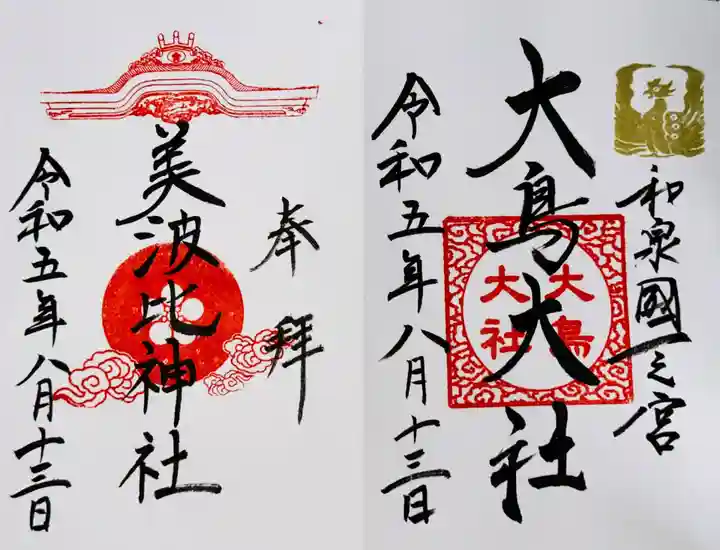 和泉國一之宮
大鳥大社
大鳥
大社
令和五年八月十三日
奉拝
美波比神社
令和五年八月十三日